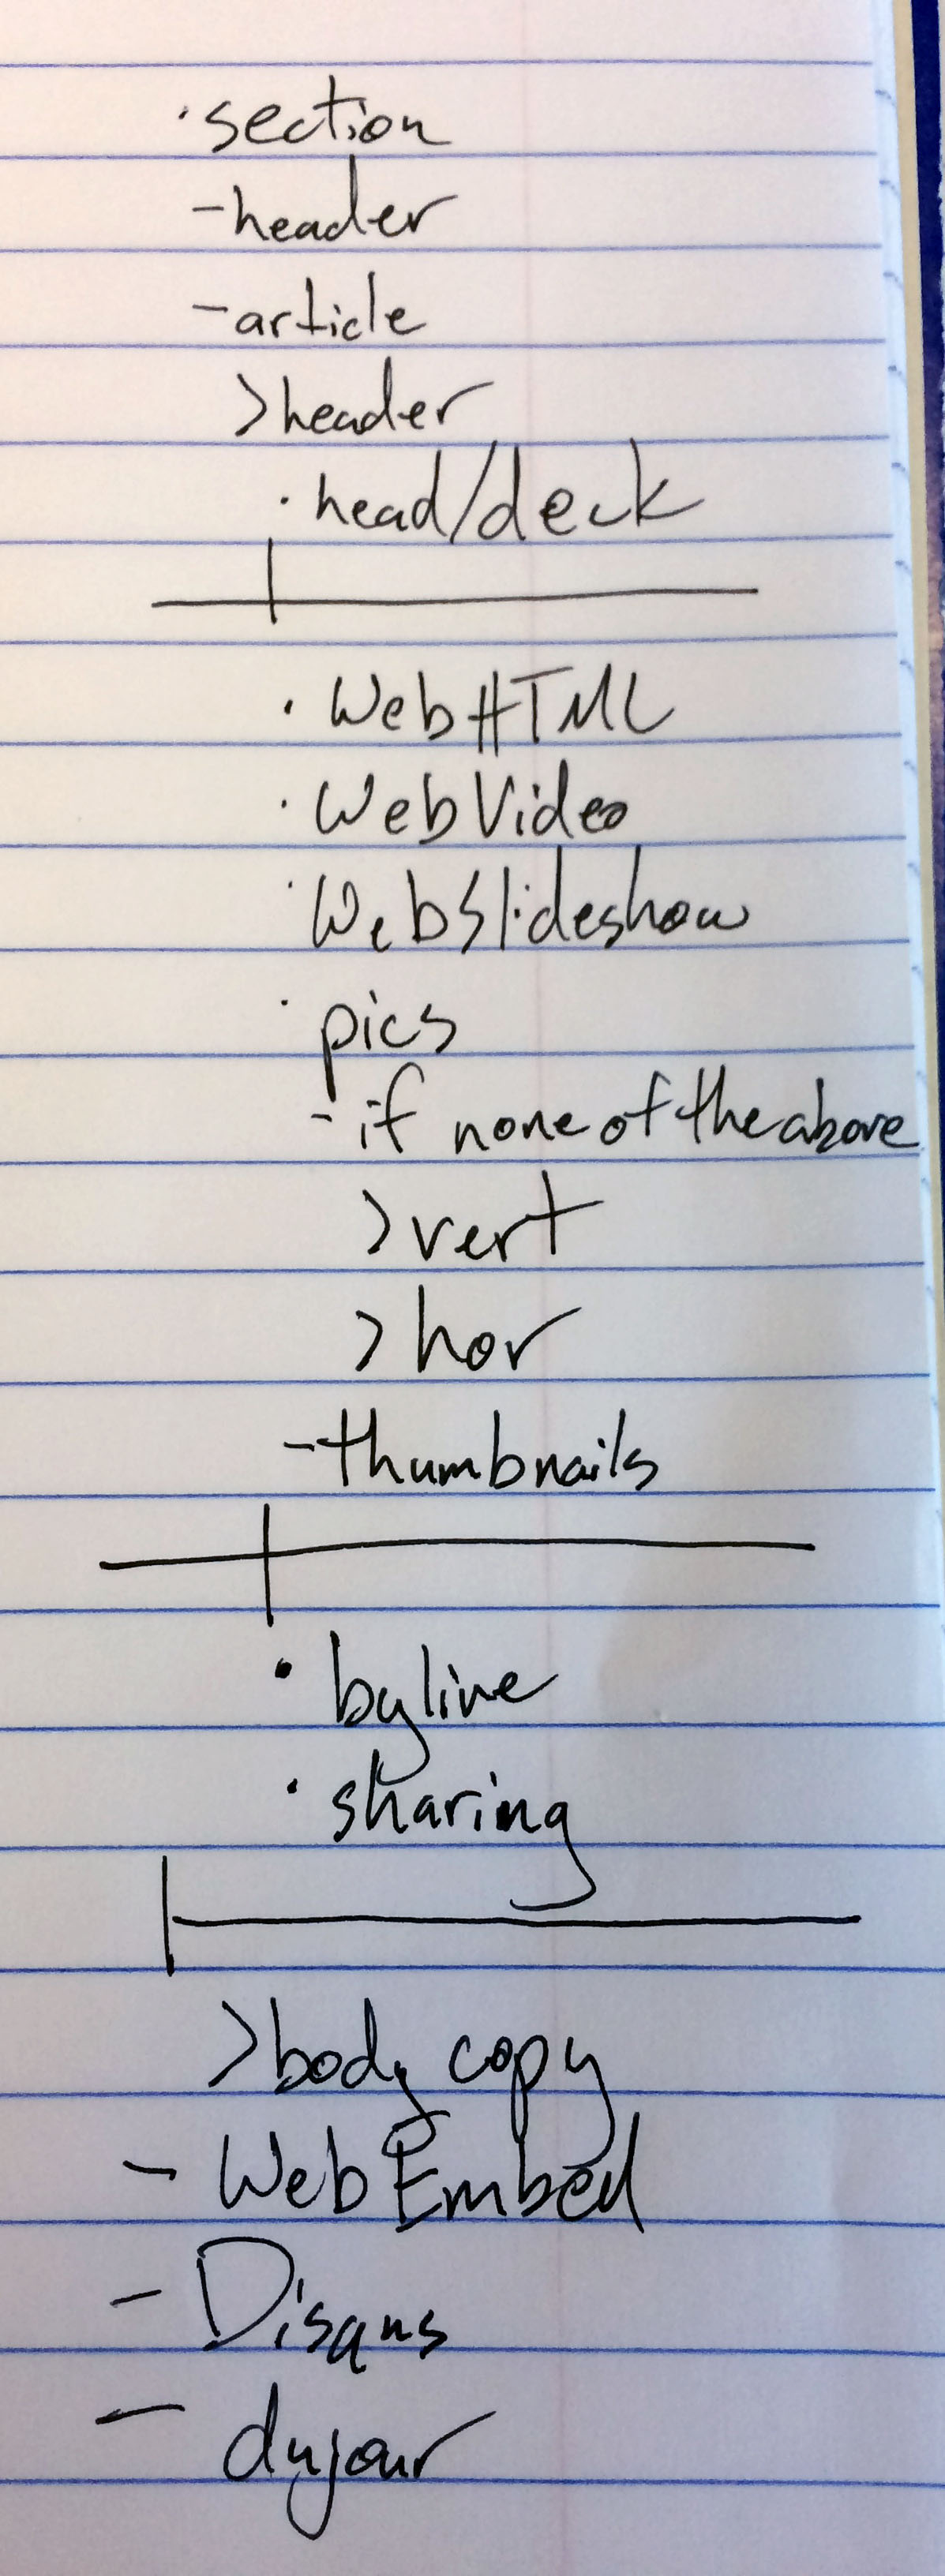 · section
- header
- article
> header
· head/deck
· WebHTML
· WebVideo
· WebSlideshow
· pics
- if none of the above
> vert
> hor
- thumbnails
· byline
· sharing
> body copy
- WebEmbed
- Disqus
- dujour